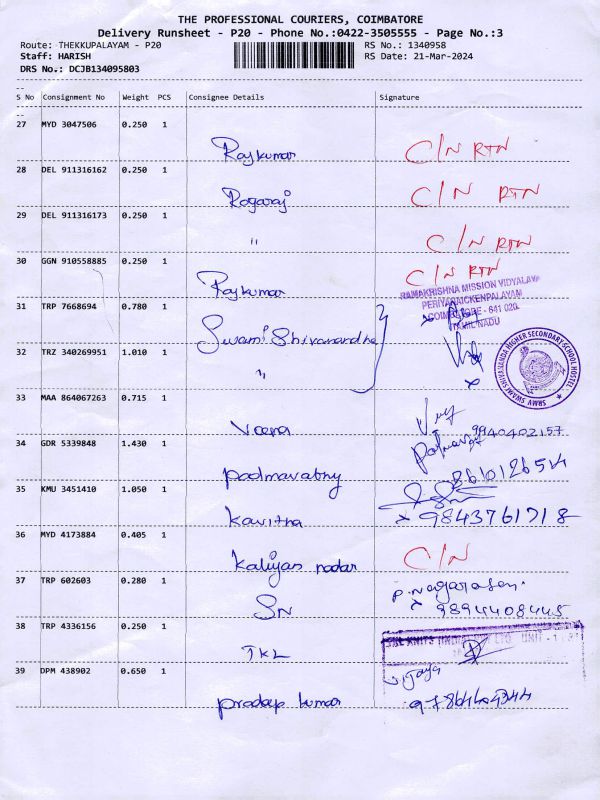 THE PROFESSIONAL COURIERS, COIMBATORE
Delivery Runsheet - P20 - Phone No.:0422-3505555 - Page No.:3
Route: THEKKUPALAYAM - P20 RS No.: 1340958
Staff: HARISH RS Date: 21-Mar-2024
DRS No.: DCJB134095803
S No Consignment No Weight PCS Consignee Details Signature
27 MYD 3047506 0.250 1
Rajkumar C/N RTN
28 DEL 911316162 0.250 1
Rogaraj C/N RTN
29 DEL 911316173 0.250 1
" C/N RTN
30 GGN 910558885 0.250 1
Rajkumar C/N RTN
RAMAKRISHNA MISSION VIDYALAYA
PERIYANAICKENPALAYAM
COIMBATORE - 641 020.
TAMIL NADU
31 TRP 7668694 0.780 1
Swami Shivanandha
32 TRZ 340269951 1.010 1
"
SRMV SWAMI SHIVANANDA HIGHER SECONDARY SCHOOL HOSTEL
33 MAA 864067263 0.715 1
Veena 9940402157
34 GDR 5339848 1.430 1
Padmavathy
35 KMU 3451410 1.050 1
Kavitha 9843761718
36 MYD 4173884 0.405 1
Kaliyas nadar C/N
37 TRP 602603 0.280 1
SN P. Nagarasan.
9894408445
38 TRP 4336156 0.250 1
TKL
39 DPM 438902 0.650 1
Vijaya
Pradap kumar